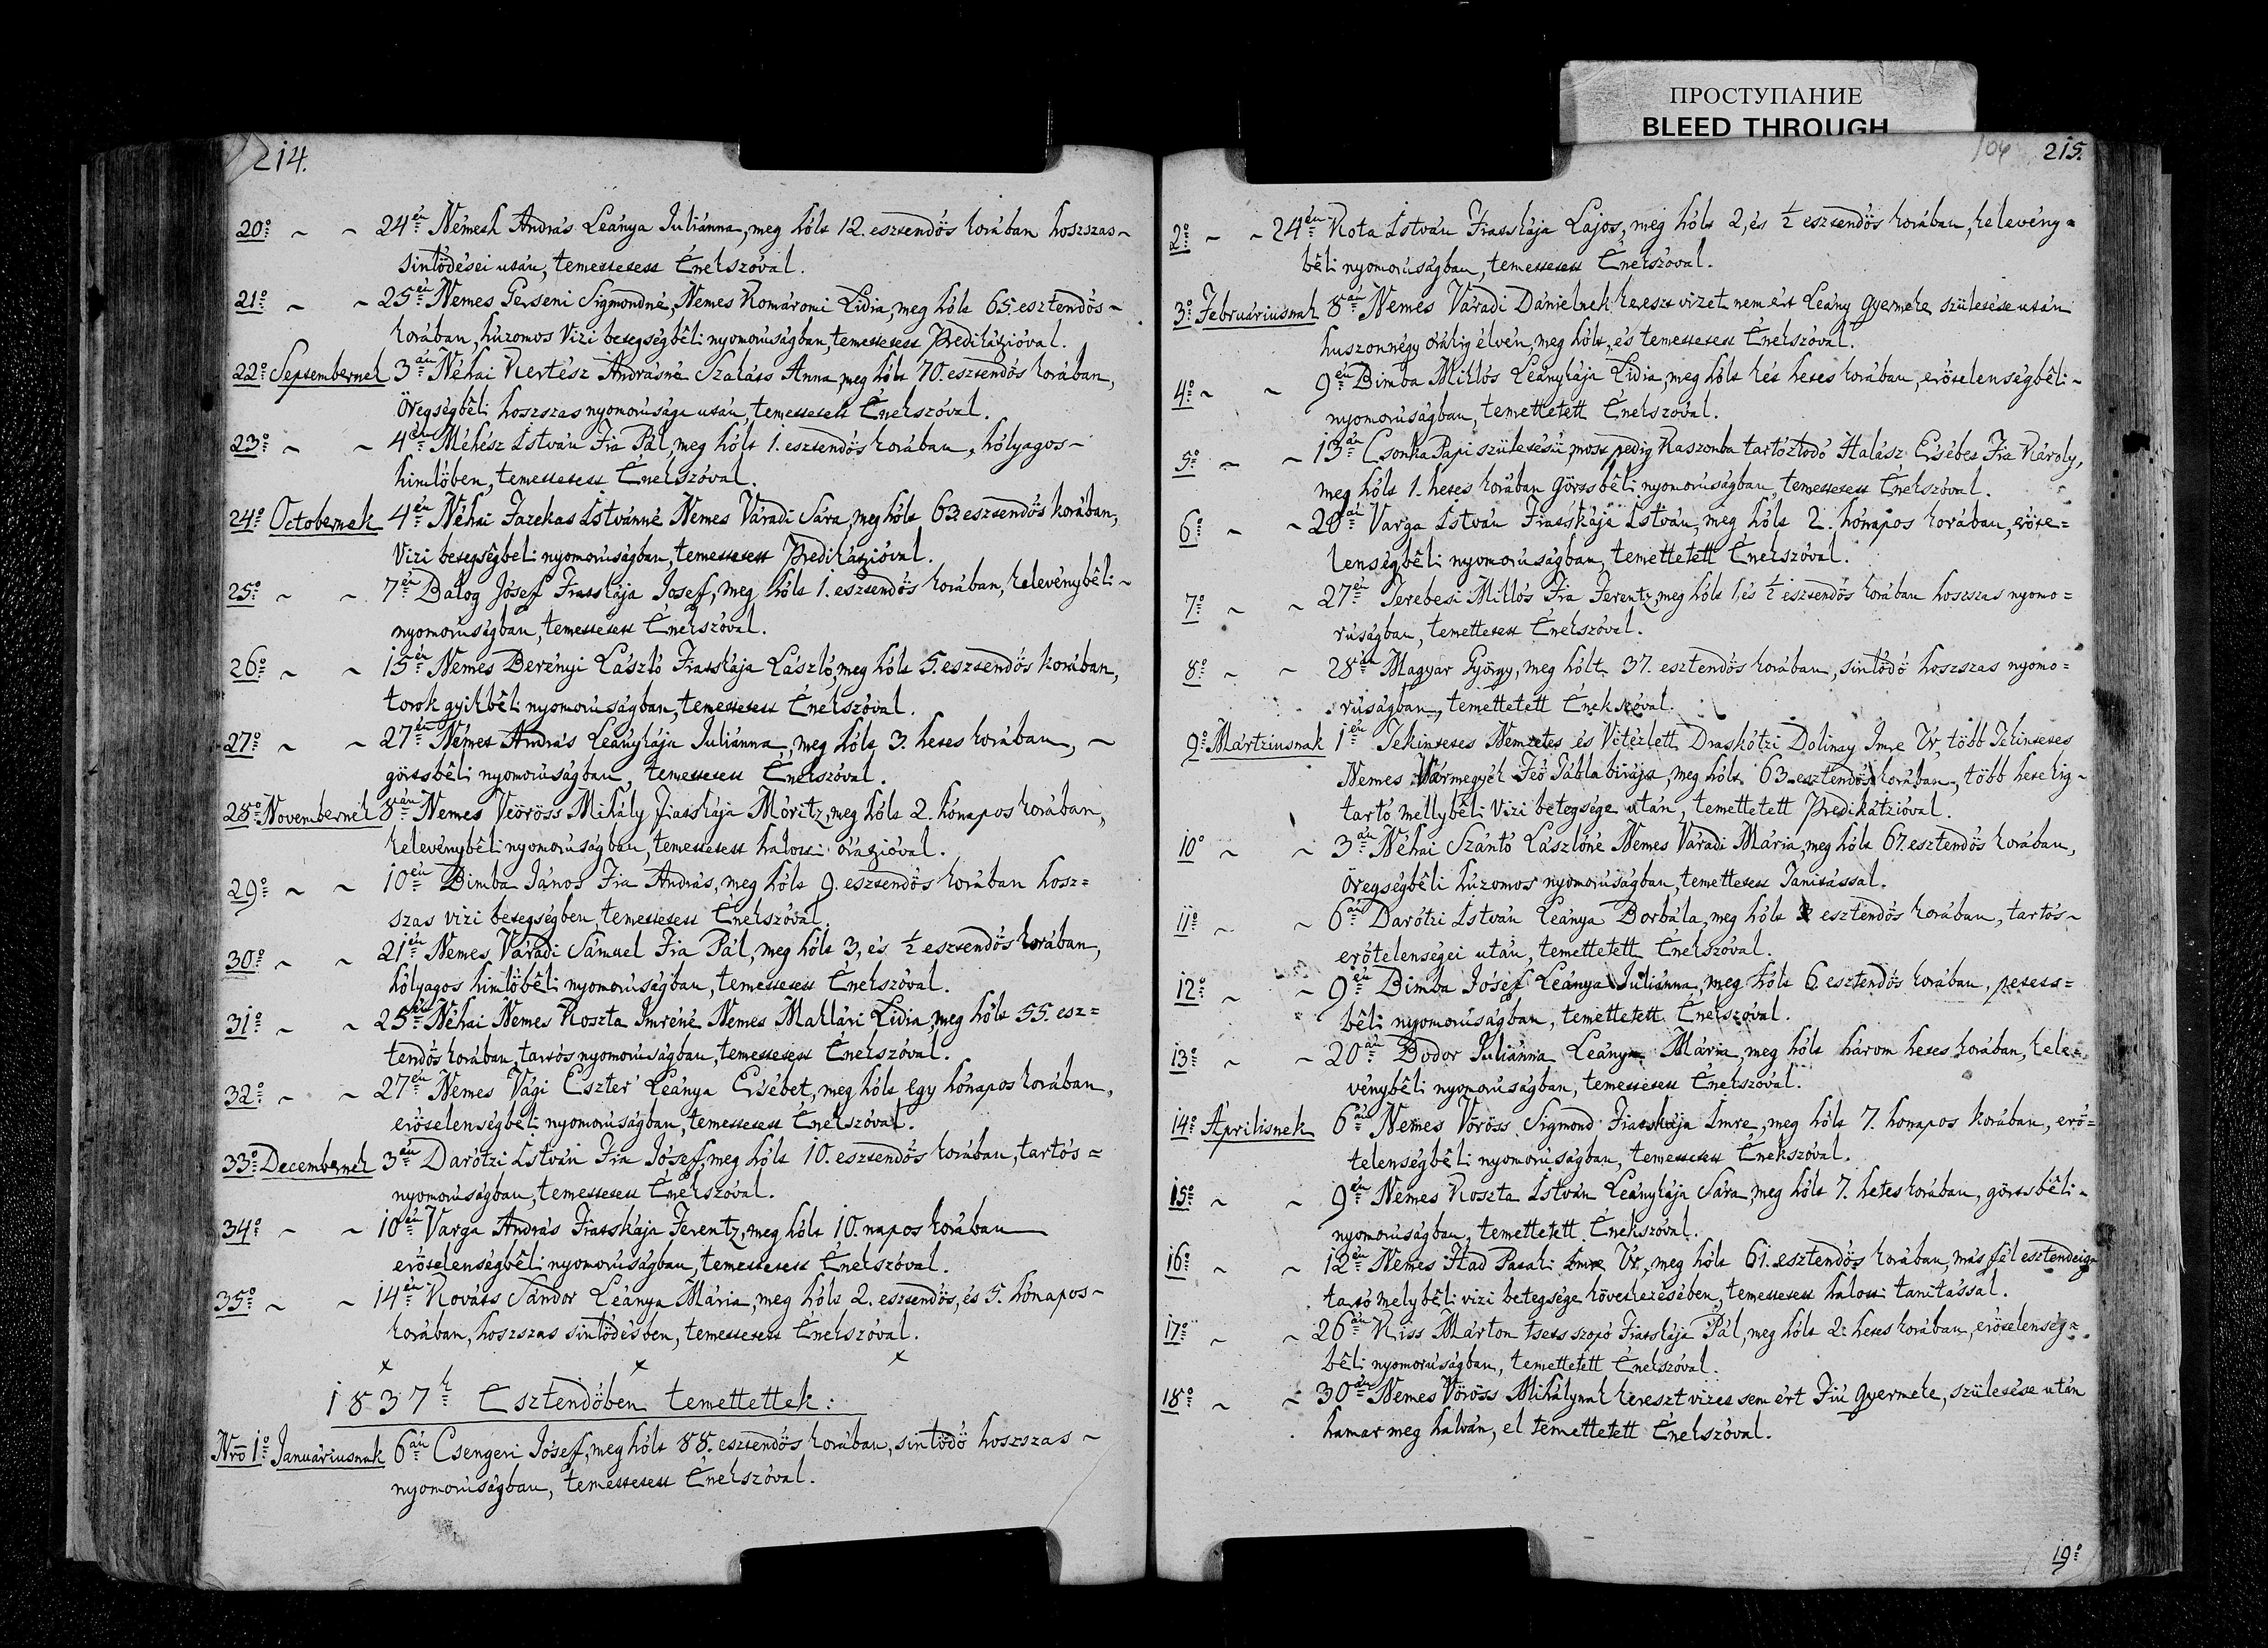 ПРОСТУПАНИЕ
BLEED THROUGH
214.
20º ~ ~ 24én Németh András Leánya Juliánna, meg hólt 12. esztendös korában hoszszas~
sintödései után, temettetett Énekszóval.
21º ~ ~ 25én Nemes Gerseni Sigmondné, Nemes Komáromi Lidia, meg hólt 65. esztendös~
korában, húzomos Vizi betegségbêli nyomorúságban, temettetett Predikátzióval.
22º Septembernek 3án Néhai Kertész Andrásné Szakáts Anna, meg hólt 70. esztendös korában,
Öregségbêli hoszszas nyomorúsága után, temettetett Énekszóval.
23º ~ ~ 4én Méhész István Fia Pál, meg hólt 1. esztendös korában, hólyagos~
himlöben, temettetett Énekszóval.
24º Octobernek 4én Néhai Fazekas Istvánné Nemes Váradi Sára, meg hólt 63. esztendös korában,
Vizi betegségbeli nyomorúságban, temettetett Predikátzióval.
25º ~ ~ 7én Balog Jósef Fiatskája Josef, meg hólt 1. esztendös korában, kelevénybêli~
nyomorúságban, temettetett Énekszóval.
26º ~ ~ 15én Nemes Berényi László Fiatskája László, meg hólt 5. esztendös korában,
torok gyikbêli nyomorúságban, temettetett Énekszóval.
27º ~ ~ 27én Német András Leánykája Juliánna, meg hólt 3. hetes korában, ~
görtsbêli nyomorúságban, temettetett Énekszóval.
28º Novembernek 8án Nemes Veöröss Mihály Fiatskája Móritz, meg hólt 2. hónapos korában,
kelevénybêli nyomorúságban, temettetett halotti órátzióval.
29º ~ ~ 10én Bimba János Fia András, meg hólt 9. esztendös korában hosz=
szas vizi betegségben, temettetett Énekszóval.
30º ~ ~ 21én Nemes Váradi Sámuel Fia Pál, meg hólt 3, és ½ esztendös korában,
hólyagos himlöbêli nyomorúságban, temettetett Énekszóval.
31º ~ ~ 25én Néhai Nemes Koszta Imréné Nemes Maklári Lidia, meg hólt 55. esz=
tendös korában, tartós nyomorúságban, temettetett Énekszóval.
32º ~ ~ 27én Nemes Vági Eszter Leánya Ersébet, meg hólt egy hónapos korában,
erötelenségbêli nyomorúságban, temettetett Énekszóval.
33º Decembernek 3án Darótzi István Fia Jósef, meg hólt 10. esztendös korában, tartós=
nyomorúságban, temettetett Énekszóval.
34º ~ ~ 10én Varga András Fiatskája Ferentz, meg hólt 10. napos korában
erötelenségbêli nyomorúságban, temettetett Énekszóval.
35º ~ ~ 14én Kováts Sándor Leánya Mária, meg hólt 2. esztendös, és 5. hónapos~
korában, hoszszas sintödésben, temettetett Énekszóval.
x x x
1837k Esztendöben temettettek:
Nrō 1º Januáriusnak 6án Csengeri Jósef, meg hólt 88. esztendös korában, sintödö hoszszas~
nyomorúságban, temettetett Énekszóval.
106 215.
2º ~ ~ 24én Kota István Fiatskája Lajos, meg hólt 2, és ½ esztendös korában, kelevény=
bêli nyomorúságban, temettetett Énekszóval.
3º Februáriusnak 8án Nemes Váradi Dánielnek kereszt vizet nem ért Leány gyermeke születése után
huszonnégy órákig élvén, meg hólt, és temettetett Énekszóval.
4º ~ ~ 9én Bimba Miklós Leánykája Lidia, meg hólt két hetes korában, erötelenségbêli~
nyomorúságban, temettetett Énekszóval.
5º ~ ~ 13án Csonka Pápi születésü, most pedig Kaszonba tartóztodó Halász Ersébet Fia Károly,
meg hólt 1. hetes korában görtsbêli nyomorúságban, temettetett Énekszóval.
6º ~ ~ 20án Varga István Fiatskája István, meg hólt 2. hónapos korában, eröte=
lenségbêli nyomorúságban, temettetett Énekszóval.
7º ~ ~ 27én Terebesi Miklós Fia Ferentz, meg hólt 1, és ½ esztendös korában hoszszas nyomo=
rúságban, temettetett Énekszóval.
8º ~ ~ 28án Magyar György, meg hólt 37. esztendös korában, sintödö hoszszas nyomo=
rúságban, temettetett Énekszóval.
9º Mártziusnak 1én Tekintetes Nemzetes és Vitézlett Draskótzi Dolinay Imre Úr, több Tekintetes
Nemes Vármegyék Feö Tábla birája, meg hólt 63. esztendös korában, több hetekig~
tartó mellybêli Vizi betegsége után, temettetett Predikátzióval.
10º ~ ~ 3án Néhai Szántó Lászlóné Nemes Váradi Mária, meg hólt 67. esztendös korában,
Öregségbêli húzomos nyomorúságban, temettetett Tanitással.
11º ~ ~ 6án Darótzi István Leánya Borbála, meg hólt esztendös korában, tartós~
erötelenségei után, temettetett Énekszóval.
12º ~ ~ 9én Bimba Jósef Leánya Juliánna, meg hólt 6. esztendös korában, petets=
bêli nyomorúságban, temettetett Énekszóval.
13º ~ ~ 20án Bodor Juliánna Leánya Mária, meg hólt három hetes korában, kele=
vénybêli nyomorúságban, temettetett Énekszóval.
14º Áprilisnek 6án Nemes Vöröss Sigmond Fiatskája Imre, meg hólt 7. honapos korában, erö=
telenségbêli nyomorúságban, temettetett Énekszóval.
15º ~ ~ 9én Nemes Koszta István Leánykája Sára, meg hólt 7. hetes korában, görtsbêli~
nyomorúságban, temettetett Énekszóval.
16º ~ ~ 12én Nemes Had Pataki Imre Úr, meg hólt 61. esztendös korában, más fél esztendeig
tartó melybêli vizi betegsége következésében, temettetett halotti tanitással.
17º ~ ~ 26án Kiss Márton tsets szopó Fiatskája Pál, meg hólt 2. hetes korában, erötelenség=
bêli nyomorúságban, temettetett Énekszóval.
18º ~ ~ 30án Nemes Vöröss Mihálynak kereszt vizet sem ért Fiú gyermeke, születése után
hamar meg halván, el temettetett Énekszóval.
19º